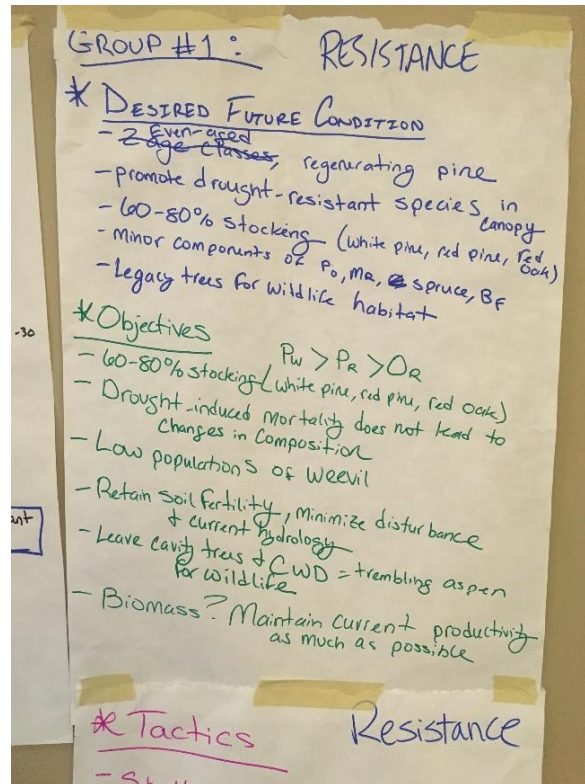 GROUP #1: RESISTANCE
* DESIRED FUTURE CONDITION
Even-aged
- 2 age classes, regenerating pine
- promote drought-resistant species in
canopy
- 60-80% stocking (white pine, red pine, red
oak)
- Minor components of Po, MR, spruce, BF
- Legacy trees for wildlife habitat
-30
* Objectives
PW > PR > OR
- 60-80% stocking (white pine, red pine, red oak)
- Drought-induced mortality does not lead to
changes in composition
- Low populations of weevil
- Retain soil fertility, minimize disturbance
+ current hydrology
ant
- Leave cavity trees + CWD = trembling aspen
for wildlife
- Biomass? Maintain current productivity
as much as possible
* Tactics Resistance